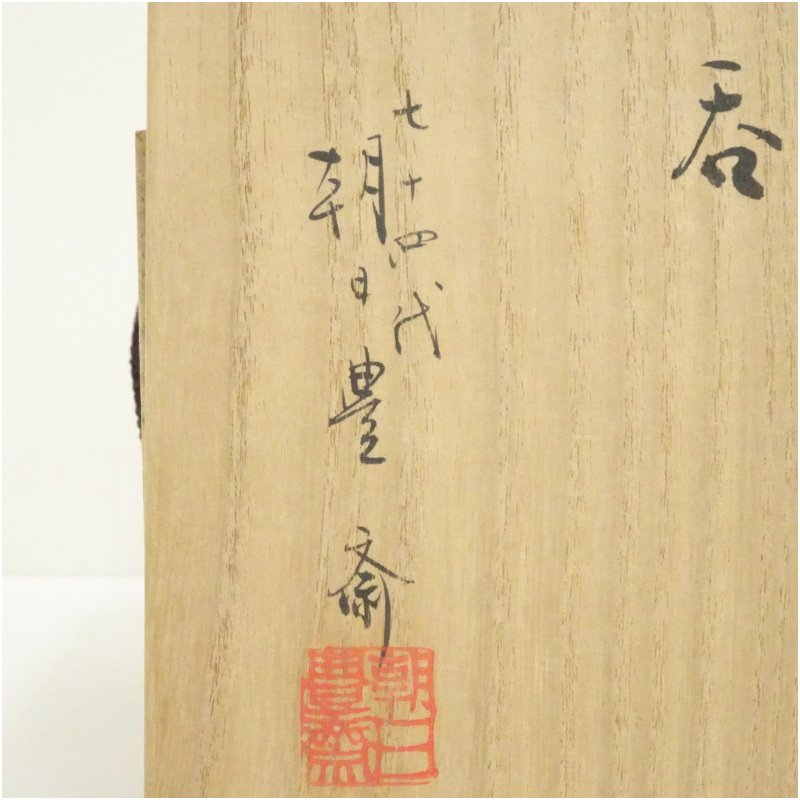 呑
七十四代
朝日豊斎
朝日
豊斎